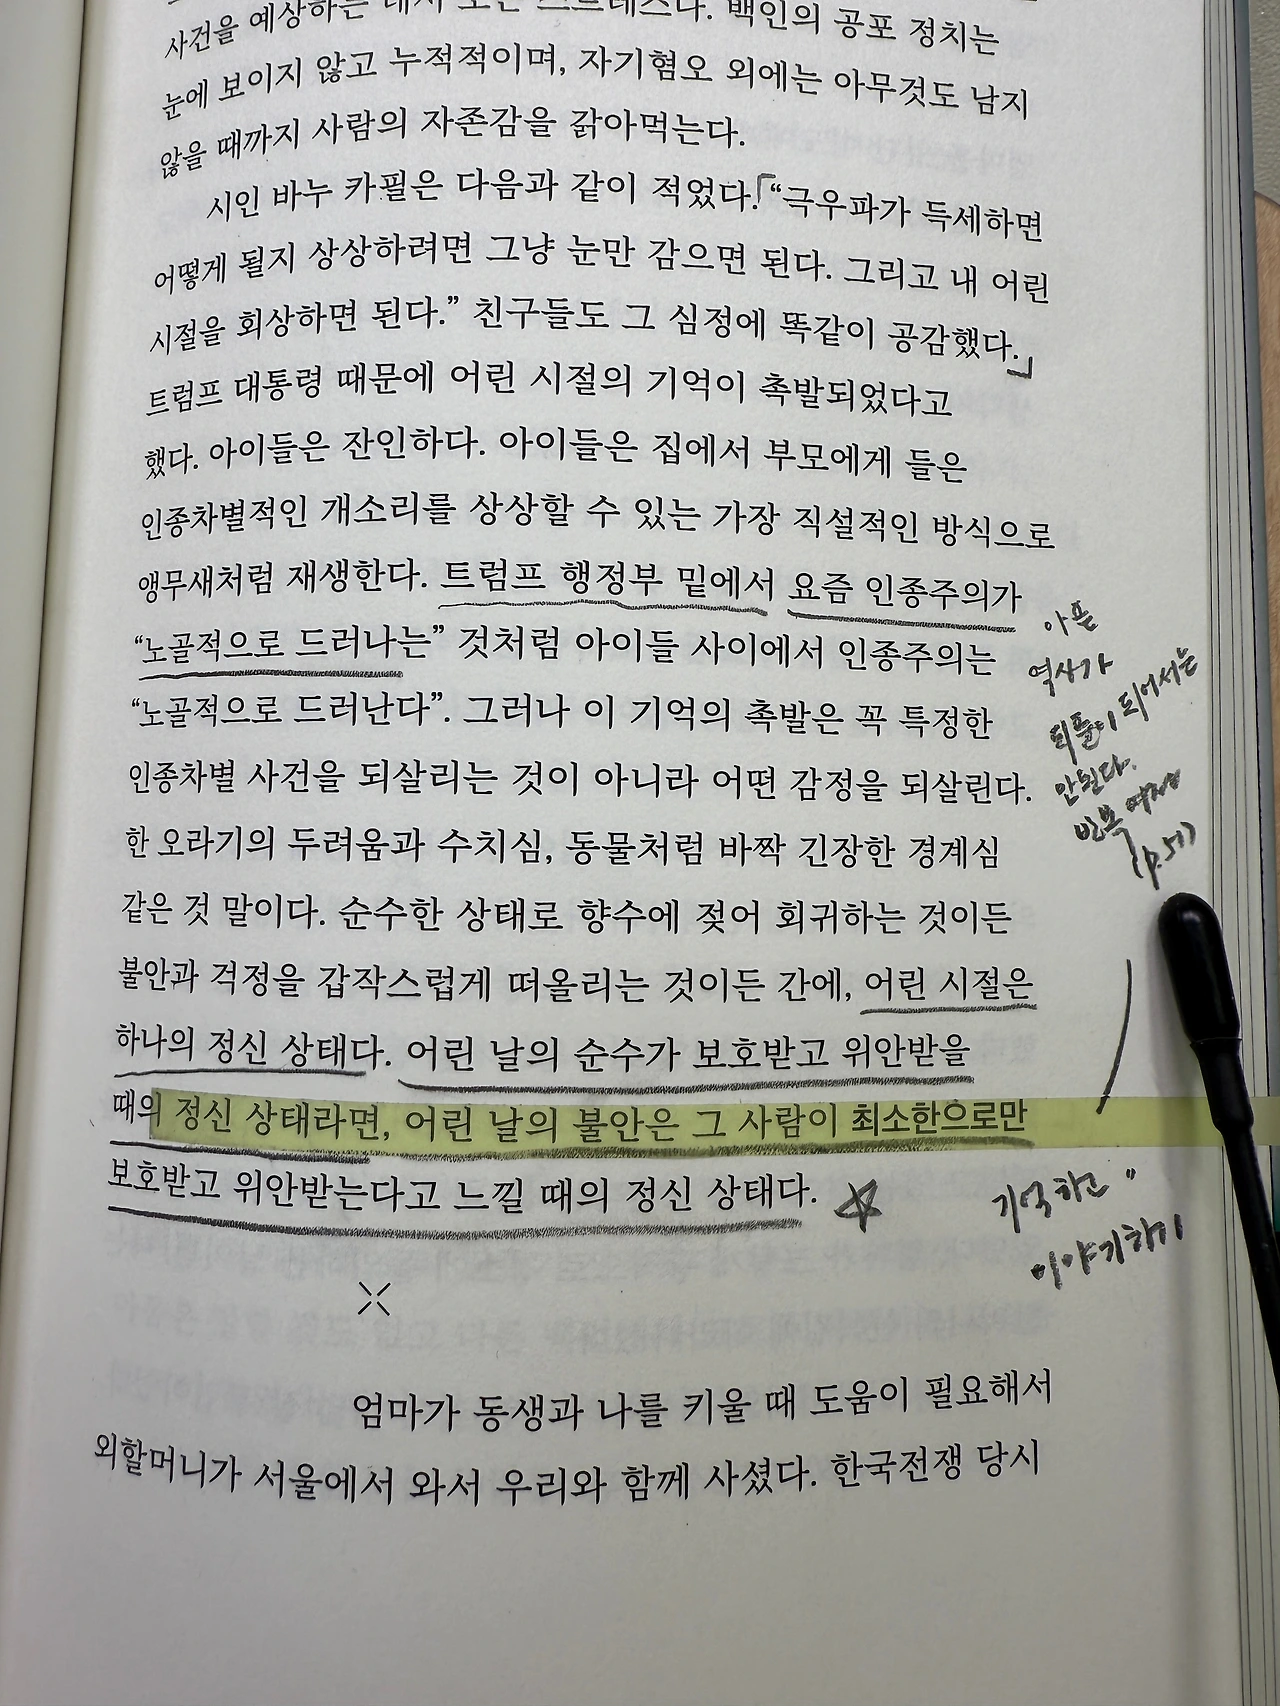 사건을 예상하는 데서 오는 스트레스다. 백인의 공포 정치는
눈에 보이지 않고 누적적이며, 자기혐오 외에는 아무것도 남지
않을 때까지 사람의 자존감을 갉아먹는다.
시인 바누 카필은 다음과 같이 적었다.「“극우파가 득세하면
어떻게 될지 상상하려면 그냥 눈만 감으면 된다. 그리고 내 어린
시절을 회상하면 된다.” 친구들도 그 심정에 똑같이 공감했다.」
트럼프 대통령 때문에 어린 시절의 기억이 촉발되었다고
했다. 아이들은 잔인하다. 아이들은 집에서 부모에게 들은
인종차별적인 개소리를 상상할 수 있는 가장 직설적인 방식으로
앵무새처럼 재생한다. 트럼프 행정부 밑에서 요즘 인종주의가
“노골적으로 드러나는” 것처럼 아이들 사이에서 인종주의는
“노골적으로 드러난다”. 그러나 이 기억의 촉발은 꼭 특정한
인종차별 사건을 되살리는 것이 아니라 어떤 감정을 되살린다.
한 오라기의 두려움과 수치심, 동물처럼 바짝 긴장한 경계심
같은 것 말이다. 순수한 상태로 향수에 젖어 회귀하는 것이든
불안과 걱정을 갑작스럽게 떠올리는 것이든 간에, 어린 시절은
하나의 정신 상태다. 어린 날의 순수가 보호받고 위안받을
때의 정신 상태라면, 어린 날의 불안은 그 사람이 최소한으로만
보호받고 위안받는다고 느낄 때의 정신 상태다.
아픈
역사가
되풀이 되어서는
안된다.
반복
(p.57)
기억하고
이야기하기
엄마가 동생과 나를 키울 때 도움이 필요해서
외할머니가 서울에서 와서 우리와 함께 사셨다. 한국전쟁 당시